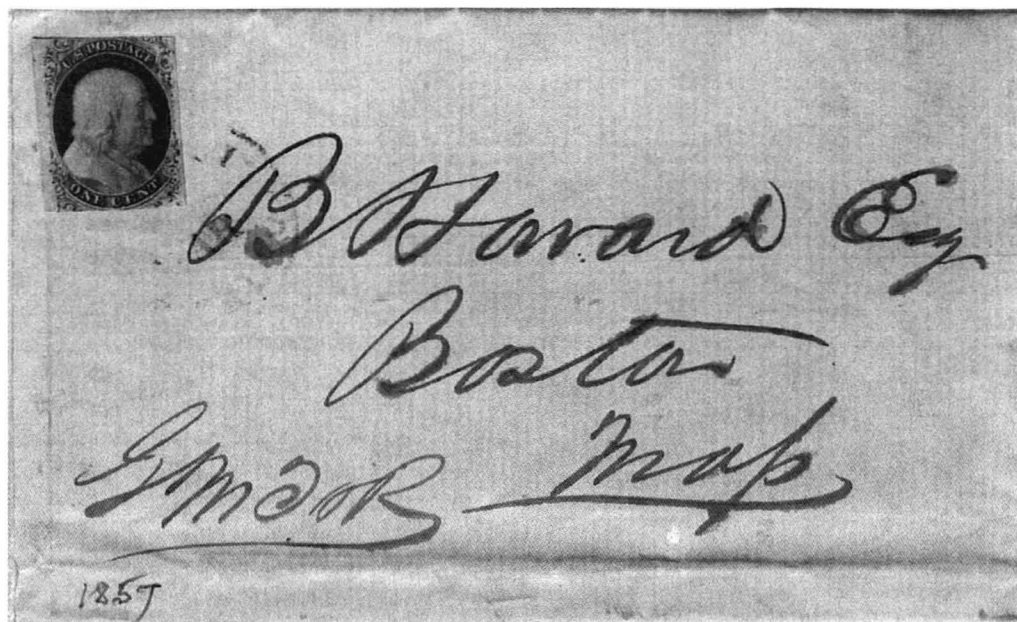 U.S. POSTAGE
ONE CENT
B Howard Esq
Boston
Mass